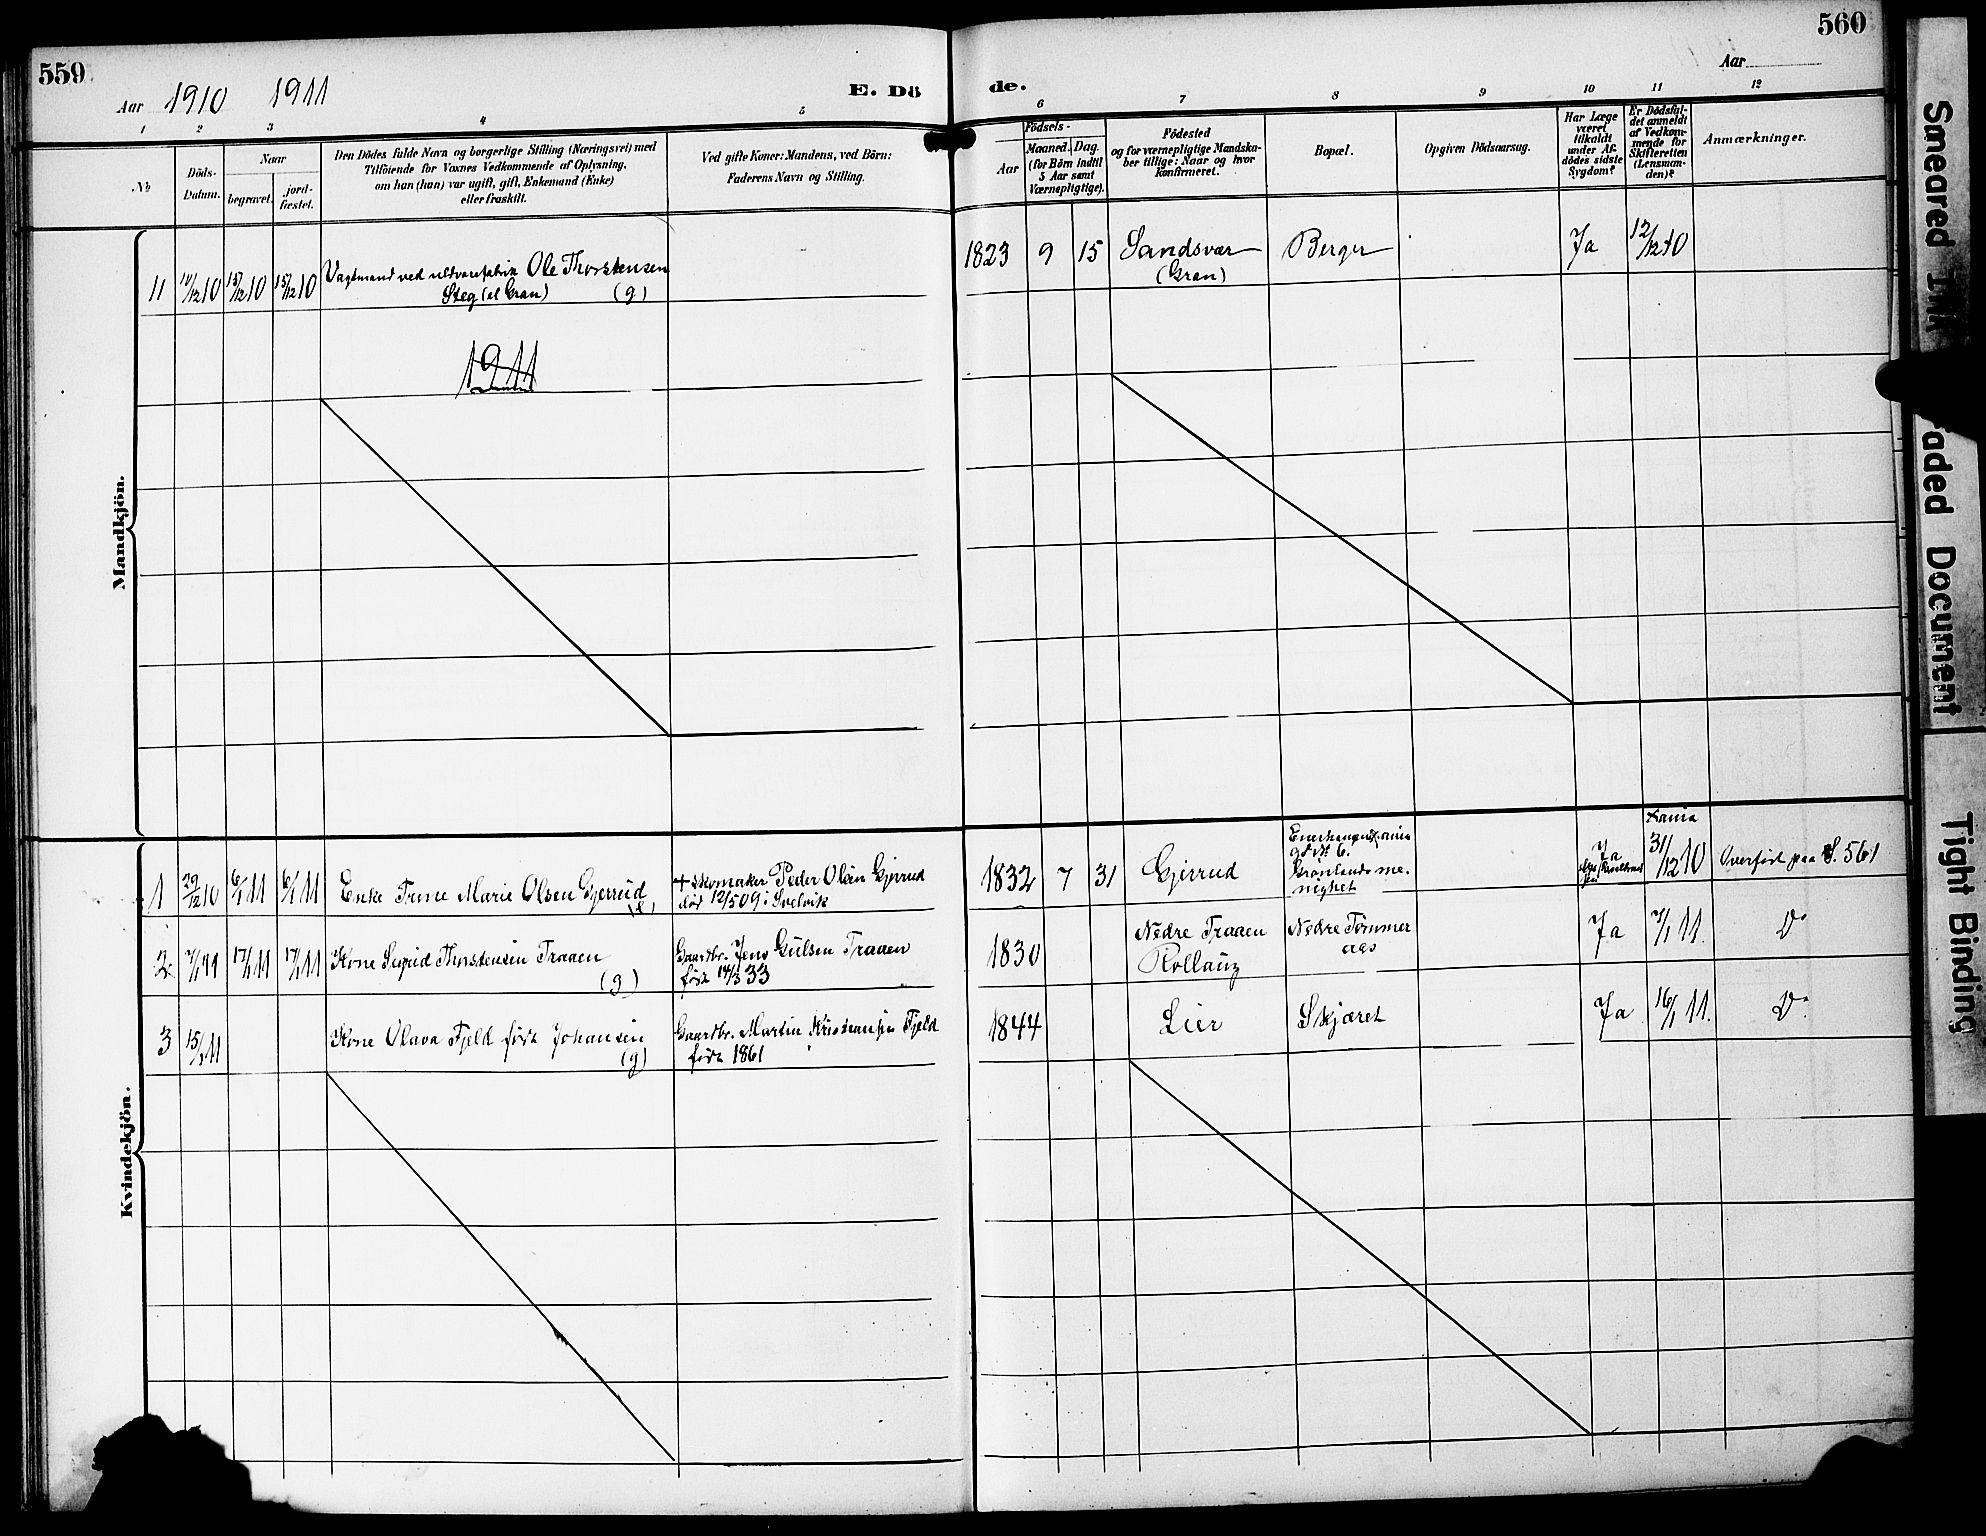 559
Aar 1910 1911
E. Dö
1 2 3 4 5
No
Döds-
Datum.
Naar
begravet.
jord-
fæstet.
Den Dödes fulde Navn og borgerlige Stilling (Næringsvei) med
Tilföiende for Voxnes Vedkommende af Oplysning,
om han (hun) var ugift, gift, Enkemand (Enke)
eller fraskilt.
Ved gifte Koner: Mandens, ved Börn:
Faderens Navn og Stilling.
Mandkjön.
11 10/12 10 15/12 10 15/12 10 Vagtmand ved uldvarefabrik Ole Thorstensen
Steg (el Gran) (g)
1911
Kvindekjön.
1 29/12 10 6/1 11 6/1 11 Enke Trine Marie Olsen Gjerrud
(e)
+ skomaker Peder Olsen Gjerrud
død 12/5 09 i Svelvik
2 7/1 11 17/1 11 17/1 11 Kone Sigrid Thorstensen Traaen
(g)
Gaardbr. Jens Gulsen Traaen
født 14/3 33
3 15/1 11 Kone Olava Fjeld født Johansen
(g)
Gaardbr. Martin Kristiansen Fjeld
født 1861
560
Aar
de.
6 7 8 9 10 11 12
Födsels-
Aar
Maaned. Dag.
(for Börn indtil
5 Aar samt
Værnepligtige).
Födested
og for værnepligtige Mandska-
ber tillige: Naar og hvor
konfirmeret.
Bopæl.
Opgiven Dödsaarsag.
Har Læge
været
tilkaldt
under Af-
dödes sidste
Sygdom?
Er Dödsfal-
det anmeldt
af Vedkom-
mende for
Skifteretten
(Lensman-
den)?
Anmærkninger.
1823 9 15 Sandsvær
(Gran)
Berger
Ja 12/12 10
1832 7 31 Gjerrud
Enerhaugen
Grønlands me-
nighet
Ja
Krania
31/12 10 Overført paa S. 561
1830 Nedre Traaen
Rollaug
Nedre Tømmer
aas
Ja 7/1 11. Do
1844 Lier Skjæret Ja 16/1 11. Do
Smeared Ink
Faded Document
Tight Binding